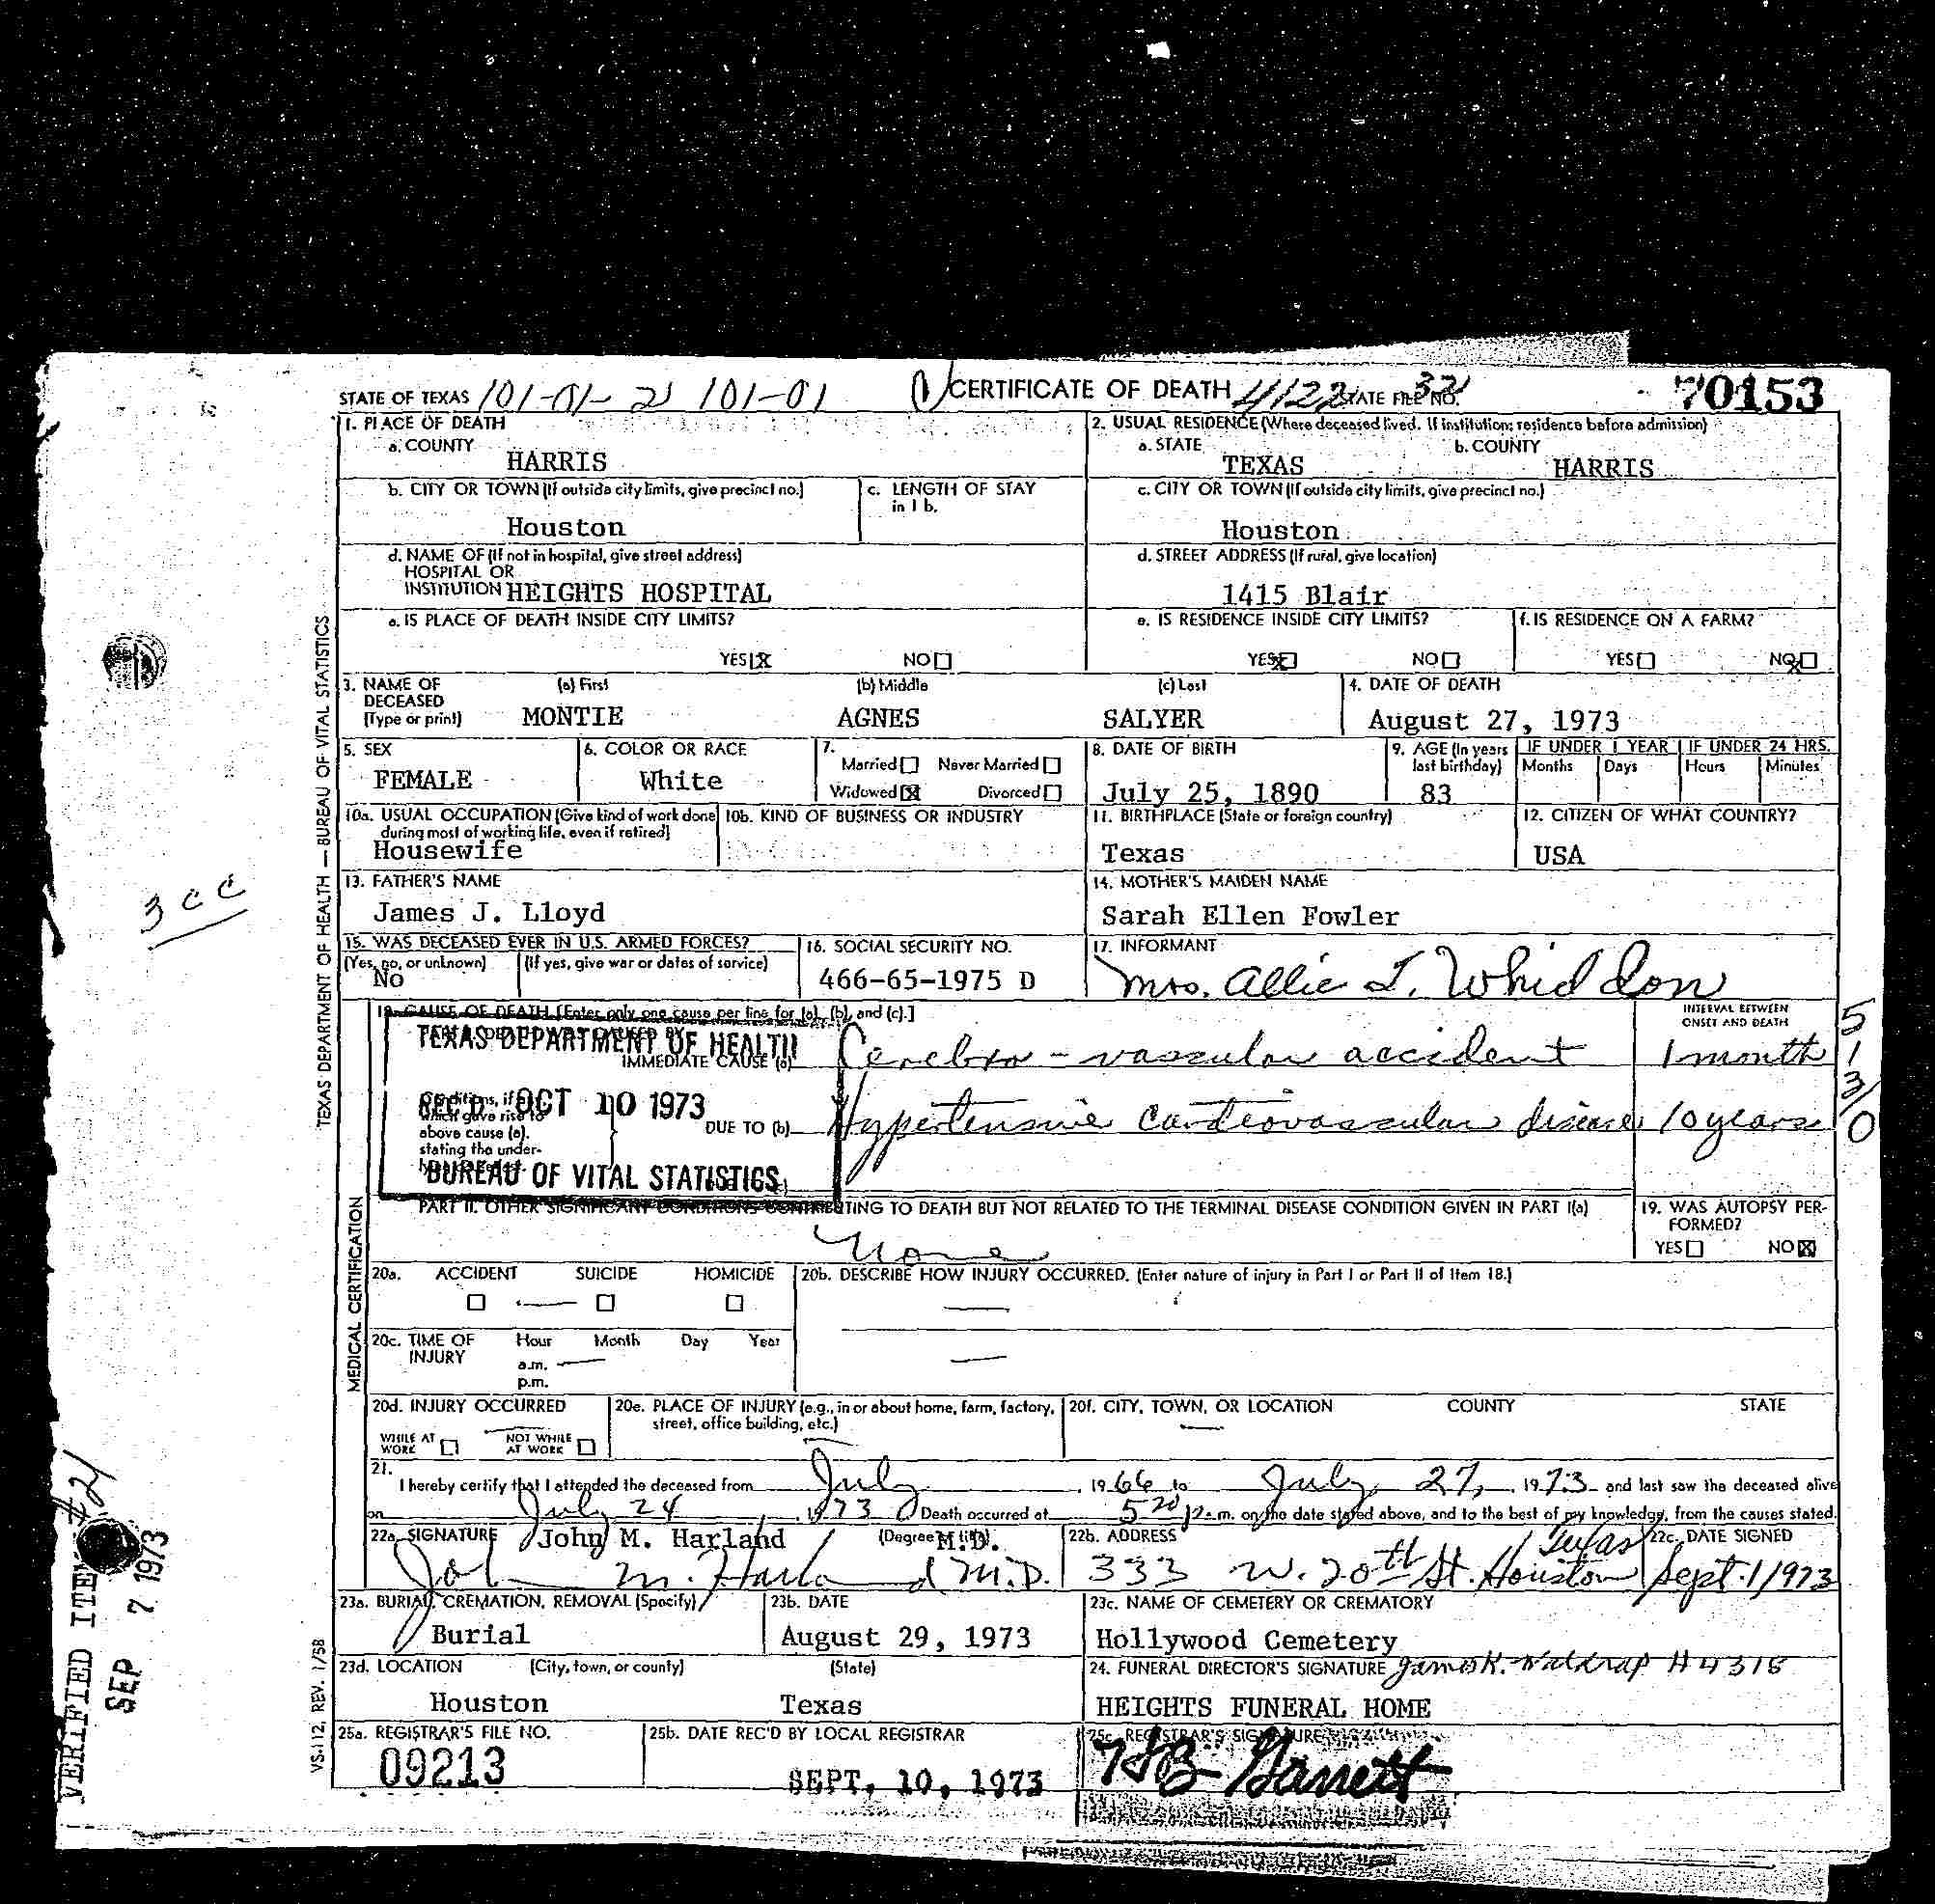 STATE OF TEXAS 101-01-21 101-01 CERTIFICATE OF DEATH 4122 STATE FILE NO. 321 70153
1. PLACE OF DEATH
a. COUNTY
HARRIS
b. CITY OR TOWN (If outside city limits, give precinct no.)
c. LENGTH OF STAY in 1 b.
Houston
d. NAME OF (If not in hospital, give street address)
HOSPITAL OR
INSTITUTION HEIGHTS HOSPITAL
e. IS PLACE OF DEATH INSIDE CITY LIMITS?
YES X NO
2. USUAL RESIDENCE (Where deceased lived. If institution: residence before admission)
a. STATE b. COUNTY
TEXAS HARRIS
c. CITY OR TOWN (If outside city limits, give precinct no.)
Houston
d. STREET ADDRESS (If rural, give location)
1415 Blair
e. IS RESIDENCE INSIDE CITY LIMITS? f. IS RESIDENCE ON A FARM?
YES X NO YES NO X
3. NAME OF DECEASED (Type or print)
(a) First (b) Middle (c) Last
MONTIE AGNES SALYER
4. DATE OF DEATH
August 27, 1973
5. SEX
FEMALE
6. COLOR OR RACE
White
7.
Married Never Married
Widowed X Divorced
8. DATE OF BIRTH
July 25, 1890
9. AGE (In years last birthday)
83
IF UNDER 1 YEAR IF UNDER 24 HRS.
Months Days Hours Minutes
10a. USUAL OCCUPATION (Give kind of work done
during most of working life, even if retired)
Housewife
10b. KIND OF BUSINESS OR INDUSTRY
11. BIRTHPLACE (State or foreign country)
Texas
12. CITIZEN OF WHAT COUNTRY?
USA
13. FATHER'S NAME
James J. Lloyd
14. MOTHER'S MAIDEN NAME
Sarah Ellen Fowler
15. WAS DECEASED EVER IN U.S. ARMED FORCES?
(Yes, no, or unknown) (If yes, give war or dates of service)
No
16. SOCIAL SECURITY NO.
466-65-1975 D
17. INFORMANT
Mrs. Allie L. Whiddon
18. CAUSE OF DEATH [Enter only one cause per line for (a), (b), and (c).]
INTERVAL BETWEEN
ONSET AND DEATH
TEXAS DEPARTMENT OF HEALTH
IMMEDIATE CAUSE (a) Cerebro-vascular accident 1 month
Conditions, if any,
which gave rise to
above cause (a),
stating the under-
REC'D OCT 10 1973
DUE TO (b) Hypertensive Cardiovascular disease 10 years
BUREAU OF VITAL STATISTICS
PART II. OTHER SIGNIFICANT CONDITIONS CONTRIBUTING TO DEATH BUT NOT RELATED TO THE TERMINAL DISEASE CONDITION GIVEN IN PART I(a)
None
19. WAS AUTOPSY PER-
FORMED?
YES NO X
20a. ACCIDENT SUICIDE HOMICIDE
20b. DESCRIBE HOW INJURY OCCURRED. (Enter nature of injury in Part I or Part II of Item 18.)
20c. TIME OF INJURY
Hour Month Day Year
a.m.
p.m.
20d. INJURY OCCURRED
WHILE AT WORK NOT WHILE AT WORK
20e. PLACE OF INJURY (e.g., in or about home, farm, factory,
street, office building, etc.)
20f. CITY, TOWN, OR LOCATION COUNTY STATE
21.
I hereby certify that I attended the deceased from July, 1966 to July 27, 1973 and last saw the deceased alive
on July 24, 1973 Death occurred at 5 20 p.m. on the date stated above, and to the best of my knowledge, from the causes stated.
22a. SIGNATURE John M. Harland (Degree or title) M.D.
John M. Harland M.D.
22b. ADDRESS
333 W. 20th St. Houston Texas
22c. DATE SIGNED
Sept. 1 1973
23a. BURIAL, CREMATION, REMOVAL (Specify)
Burial
23b. DATE
August 29, 1973
23c. NAME OF CEMETERY OR CREMATORY
Hollywood Cemetery
23d. LOCATION (City, town, or county) (State)
Houston Texas
24. FUNERAL DIRECTOR'S SIGNATURE James K. Waldrap # 4316
HEIGHTS FUNERAL HOME
25a. REGISTRAR'S FILE NO.
09213
25b. DATE REC'D BY LOCAL REGISTRAR
SEPT. 10, 1973
25c. REGISTRAR'S SIGNATURE
TEXAS DEPARTMENT OF HEALTH — BUREAU OF VITAL STATISTICS
MEDICAL CERTIFICATION
VS-112, REV. 1/58
3 cc
VERIFIED ITEM #21
SEP 7 1973